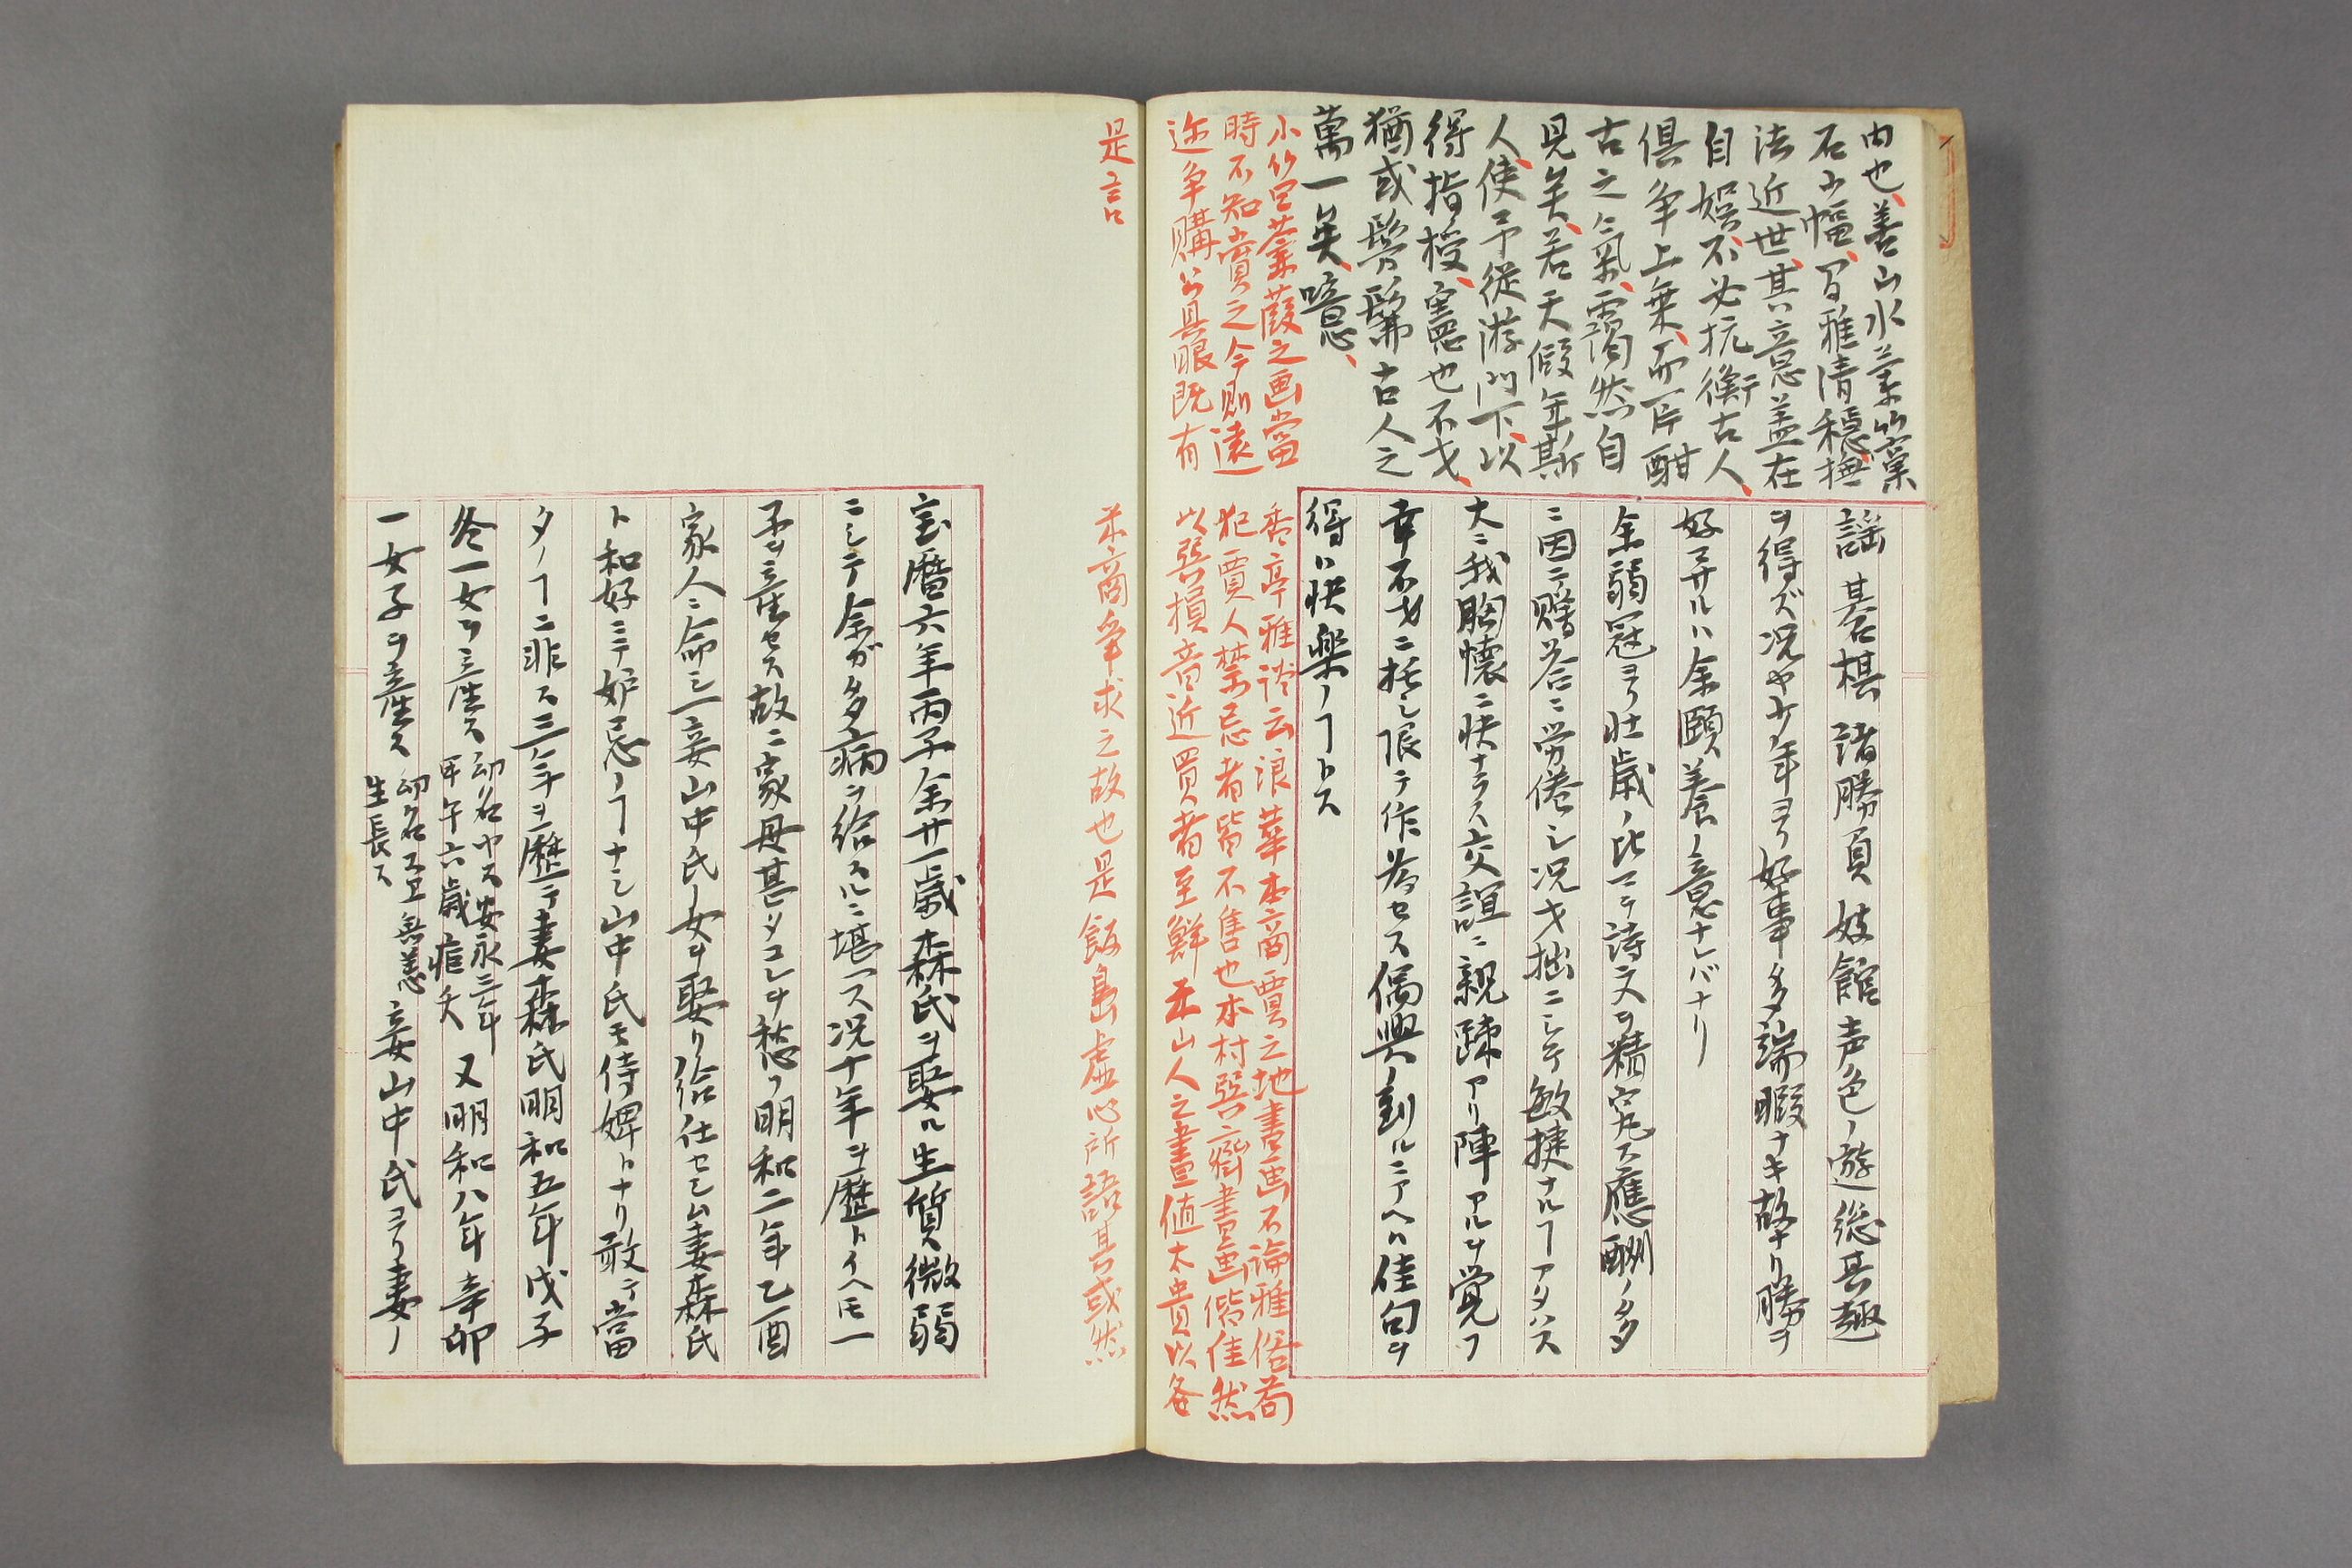 内也、善山水、蒹竹窠
石小幅、門雅清穏、撫
法近世、其意蓋在
自娯、不必抗衡古人、
倶争上乗、而一片酣
古之氣、靄然自
見矣、若天假年斯
人、使予従游門下、以
得指授、憲也不才、
猶或髣髴古人之
萬一矣、噫、
小竹曰蒹葭之画當
時不知賞之今則遠
迩争購公具眼既有
是言
謡碁棋諸勝負妓館声色ノ遊総其趣
ヲ得ズ况ヤ少年ヨリ好事多端暇ナキ故ナリ勝ヲ
好マサルハ余頤養ノ意ナレバナリ
余弱冠ヨリ壮歳ノ比マテ詩文ヲ精究ス應酬ノタメ
ニ因テ贈答ニ労倦シ况才拙ニシテ敏捷ナルヿアタハス
大ニ我胸懐ニ快ナラス交誼ニ親疎アリ陣アルヲ覚フ
幸不才ニ托シ限テ作為セス偶興ノ到ルニアヘハ佳句ヲ
得ハ快楽ノヿトス
香亭雅談云浪華本商賈之地書画不論雅俗苟
犯賈人禁忌者皆不售也本村巽齋書画偕佳然
以巽損音近買者至鮮米山人之畫値太貴以各
米商争求之故也是飯島虚心所語其或然
宝暦六年丙子余廿一歳森氏ヲ娶ル生質微弱
ニシテ余ガ多病ニ給スルニ堪ス况十年ヲ歴トイヘモ一
子ヲ産セス故ニ家母甚タコレヲ愁フ明和二年乙酉
家人ニ命シ一妾山中氏ノ女ヲ娶リ給仕セシム妻森氏
ト和好ニテ妒忌ノヿナシ山中氏モ侍婢トナリ敢テ當
タノヿニ非ス三年ヲ歴テ妻森氏明和五年戊子
冬一女ヲ産ス 幼名ヤス安永三年
甲午六歳痘夭 又明和八年辛卯
一女子ヲ産ス 幼名 無恙
生長ス 妾山中氏ヨリ妻ノ